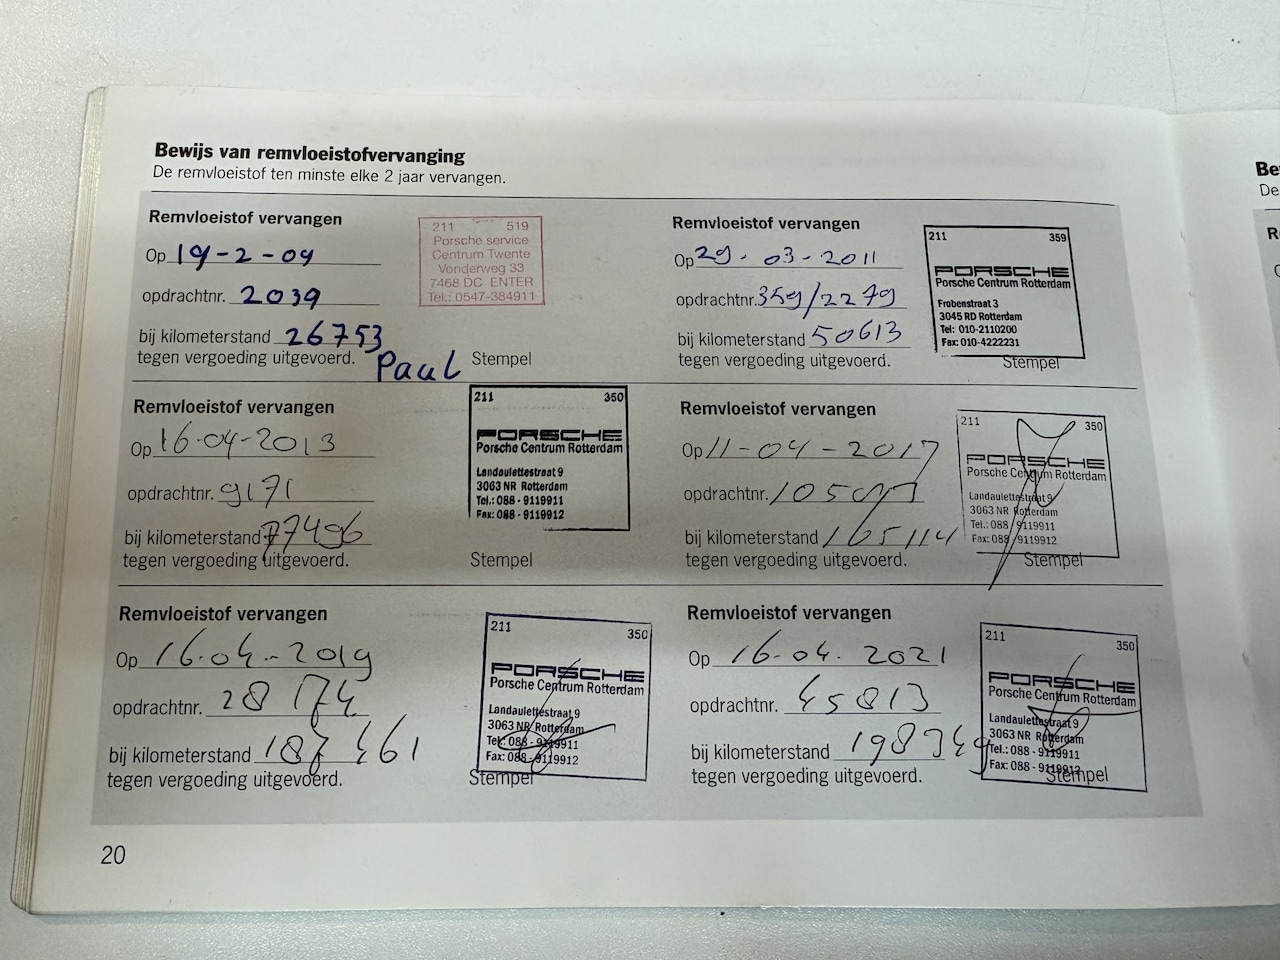 Bewijs van remvloeistofvervanging
De remvloeistof ten minste elke 2 jaar vervangen.
Remvloeistof vervangen
Op 19-2-09
opdrachtnr. 2039
bij kilometerstand 26753
tegen vergoeding uitgevoerd.
Paul
Stempel
211 519
Porsche service
Centrum Twente
Vonderweg 33
7468 DC ENTER
Tel.: 0547-384911
Remvloeistof vervangen
Op 29-03-2011
opdrachtnr. 359/2279
bij kilometerstand 50613
tegen vergoeding uitgevoerd.
Stempel
211 359
PORSCHE
Porsche Centrum Rotterdam
Frobenstraat 3
3045 RD Rotterdam
Tel: 010-2110200
Fax: 010-4222231
Remvloeistof vervangen
Op 16-04-2013
opdrachtnr. 9171
bij kilometerstand 77496
tegen vergoeding uitgevoerd.
Stempel
211 350
PORSCHE
Porsche Centrum Rotterdam
Landaulettestraat 9
3063 NR Rotterdam
Tel.: 088 - 9119911
Fax: 088 - 9119912
Remvloeistof vervangen
Op 11-04-2017
opdrachtnr.
bij kilometerstand 165114
tegen vergoeding uitgevoerd.
Stempel
211 350
PORSCHE
Porsche Centrum Rotterdam
Landaulettestraat 9
3063 NR Rotterdam
Tel.: 088 - 9119911
Fax: 088 - 9119912
Remvloeistof vervangen
Op 16-04-2019
opdrachtnr. 28174
bij kilometerstand 187461
tegen vergoeding uitgevoerd.
Stempel
211 350
PORSCHE
Porsche Centrum Rotterdam
Landaulettestraat 9
3063 NR Rotterdam
Tel.: 088 - 9119911
Fax: 088 - 9119912
Remvloeistof vervangen
Op 16-04-2021
opdrachtnr. 45813
bij kilometerstand 198349
tegen vergoeding uitgevoerd.
Stempel
211 350
PORSCHE
Porsche Centrum Rotterdam
Landaulettestraat 9
3063 NR Rotterdam
Tel.: 088 - 9119911
Fax: 088 - 9119912
20
Be
De
R